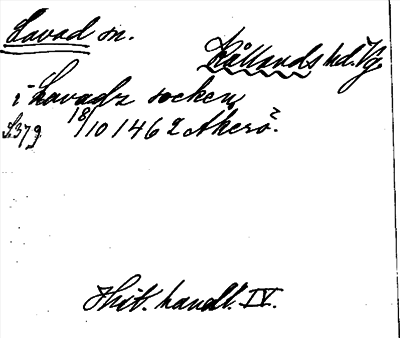 Lavad sn.
Kållands hd. Vg
i Lavadz socken
S. 379. 18/10 1462 Åkerö?
Hist. handl. IV.